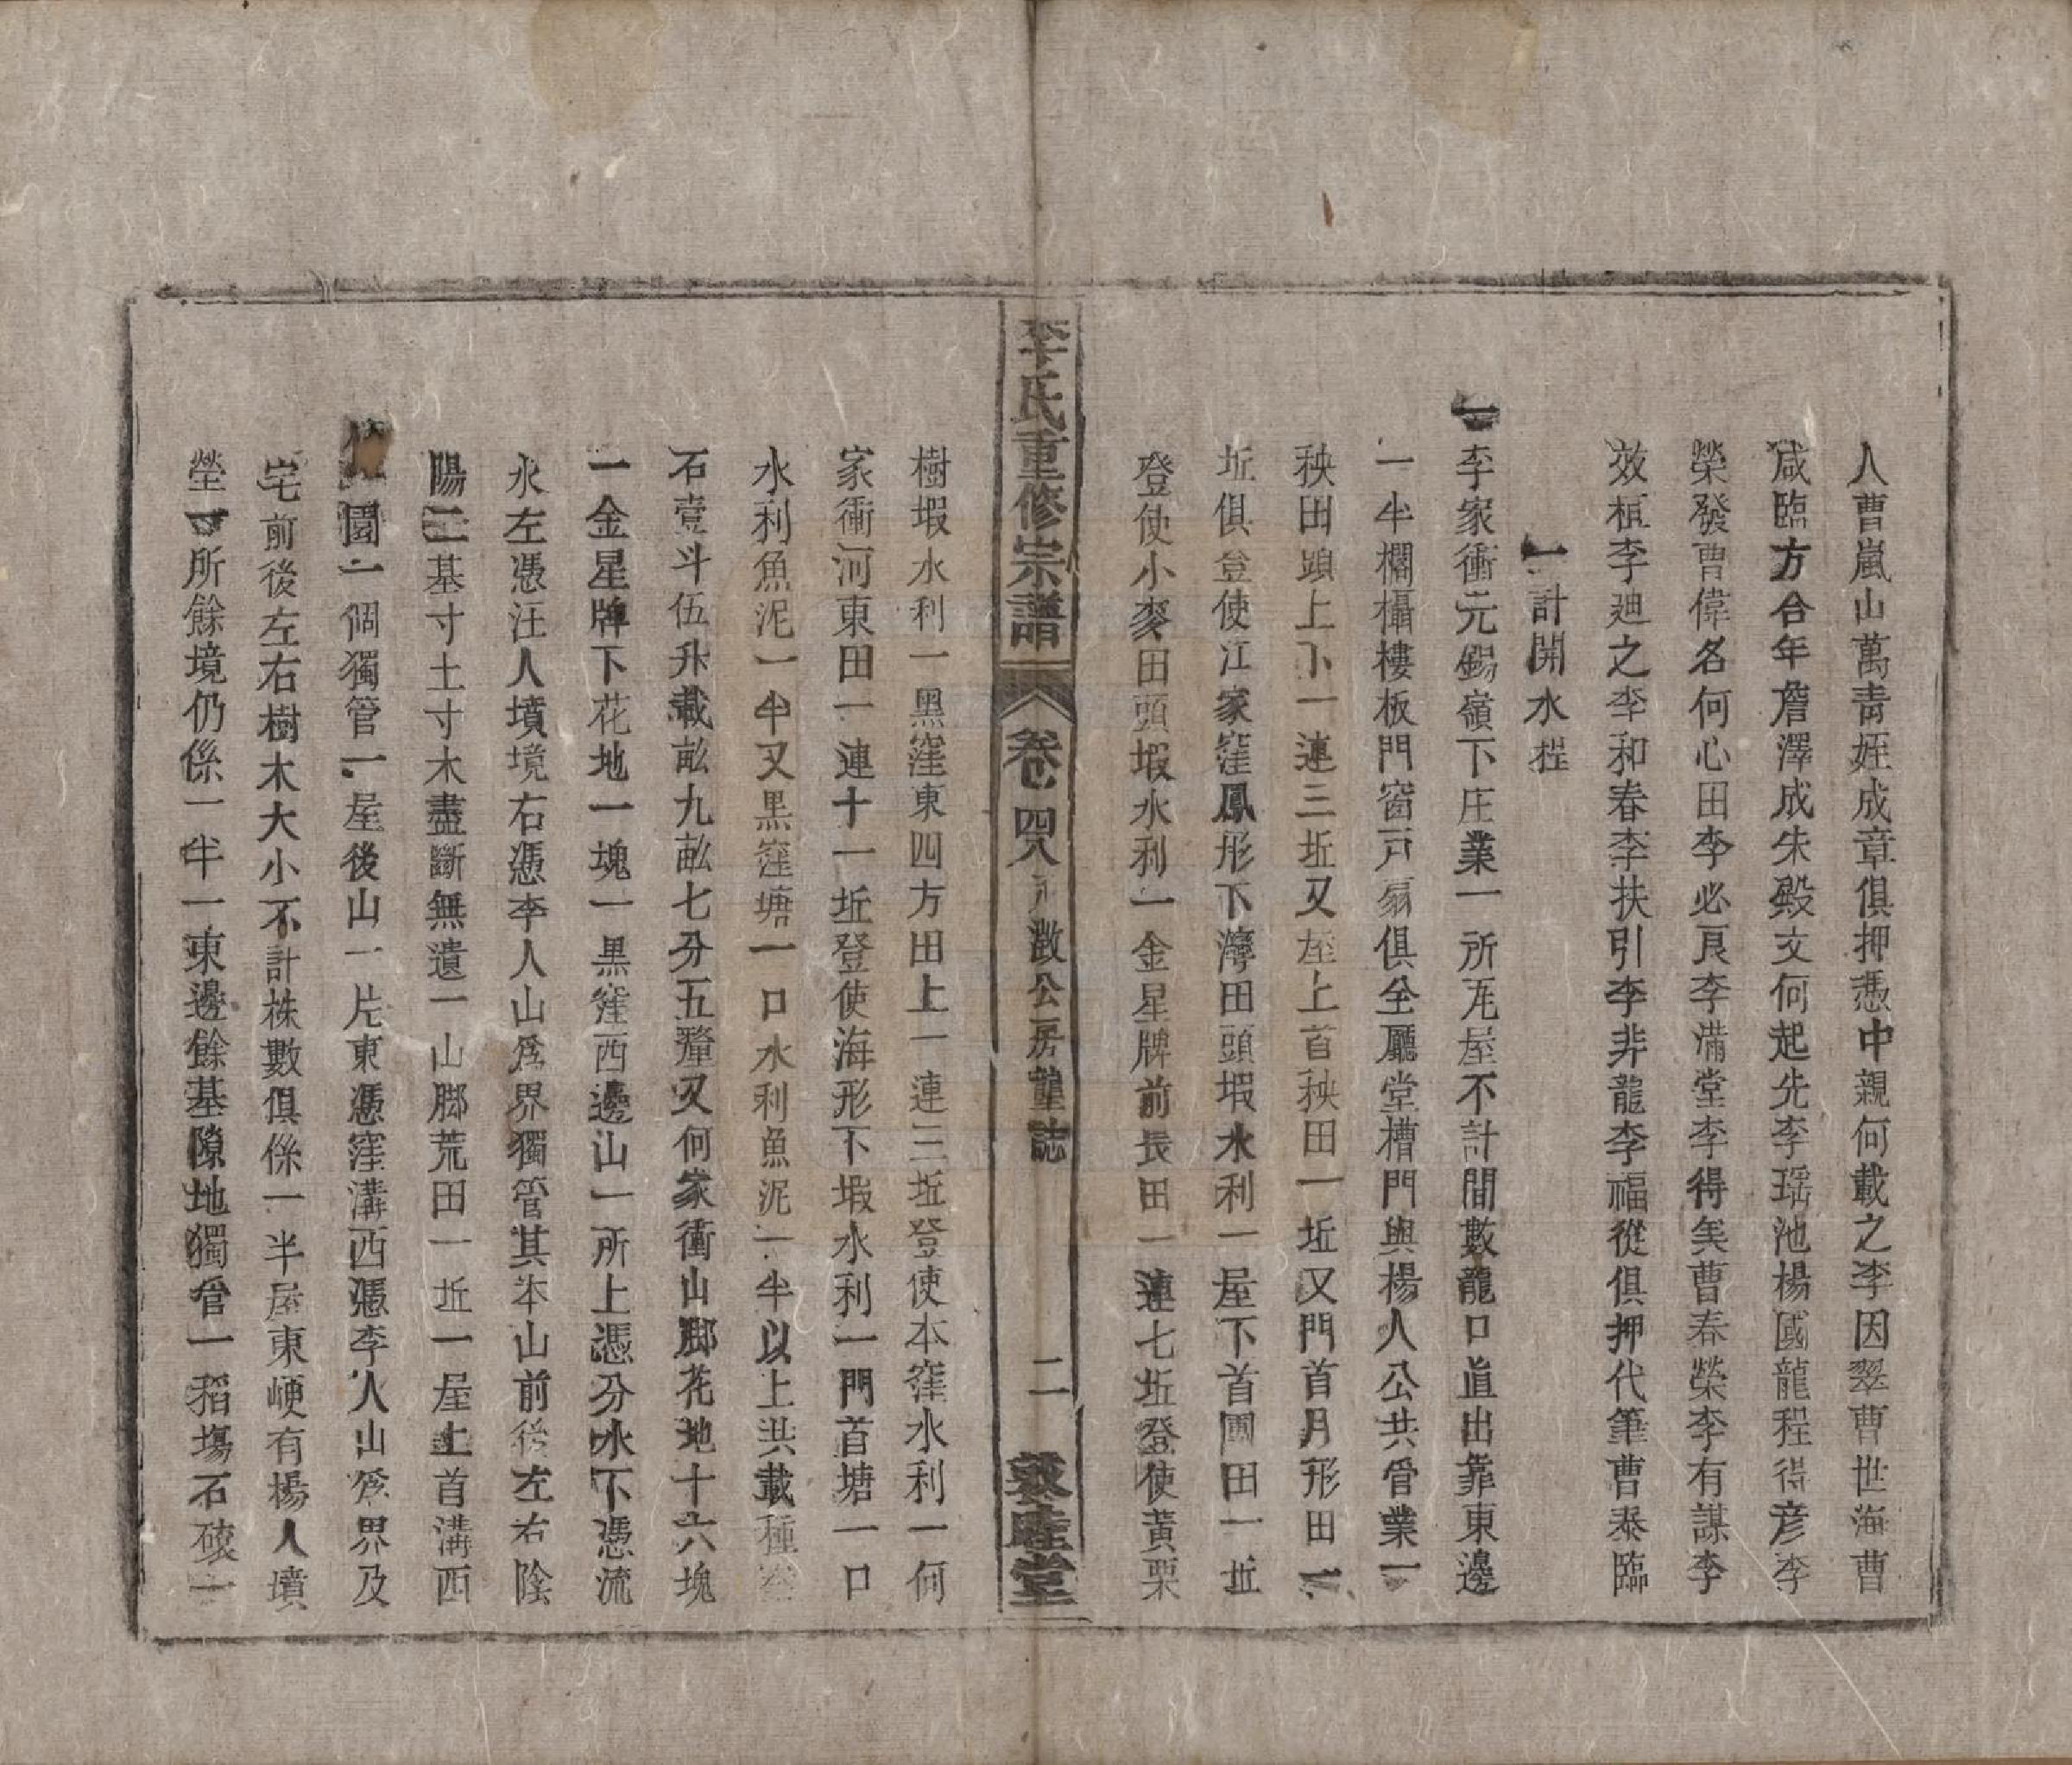 人曹嵐山萬青姪成章俱押憑中親何載之李因翠曹世海曹
咸臨方合年詹澤成朱殿文何起先李瑤池楊國龍程得彦李
榮發曹偉名何心田李必艮李滿堂李得矣曹春榮李有謀李
效桓李廸之李和春李扶引李非龍李福從俱押代筆曹泰臨
一計開水程
一李家衝元錫嶺下庄業一所瓦屋不計間數龍口直出靠東邊
一半欄欇樓板門窗戸扇俱全廳堂槽門與楊人公共管業一
秧田頭上下一連三坵又屋上首秧田一坵又門首月形田一
坵俱登使江家窪鳳形下薄田頭塅水利一屋下首團田一坵
登使小麥田頭塅水利一金星牌前長田一連七坵登使黃栗
李氏重修宗譜
卷四八
澂公房產誌
二
敦睦堂
樹塅水利一黑窪東四方田上一連三坵登使本窪水利一何
家衝河東田一連十一坵登使海形下塅水利一門首塘一口
水利魚泥一半又黒窪塘一口水利魚泥一半以上共載種
石壹斗伍升載畝九畝七分五釐又何家衝山脚花地十六塊
一金星牌下花地一塊一黒窪西邊山一所上憑分水下憑流
水左憑汪人墳境右憑李人山爲界獨管其本山前後左右陰
陽二基寸土寸木盡斷無遺一山脚荒田一坵一屋上首溝西
園一個獨管一屋後山一片東憑窪溝西憑李人山爲界及
宅前後左右樹木大小不計株數俱係一半屋東峺有楊人墳
塋一所餘境仍係一半一東邊餘基隙地獨管一稻塲石磙一